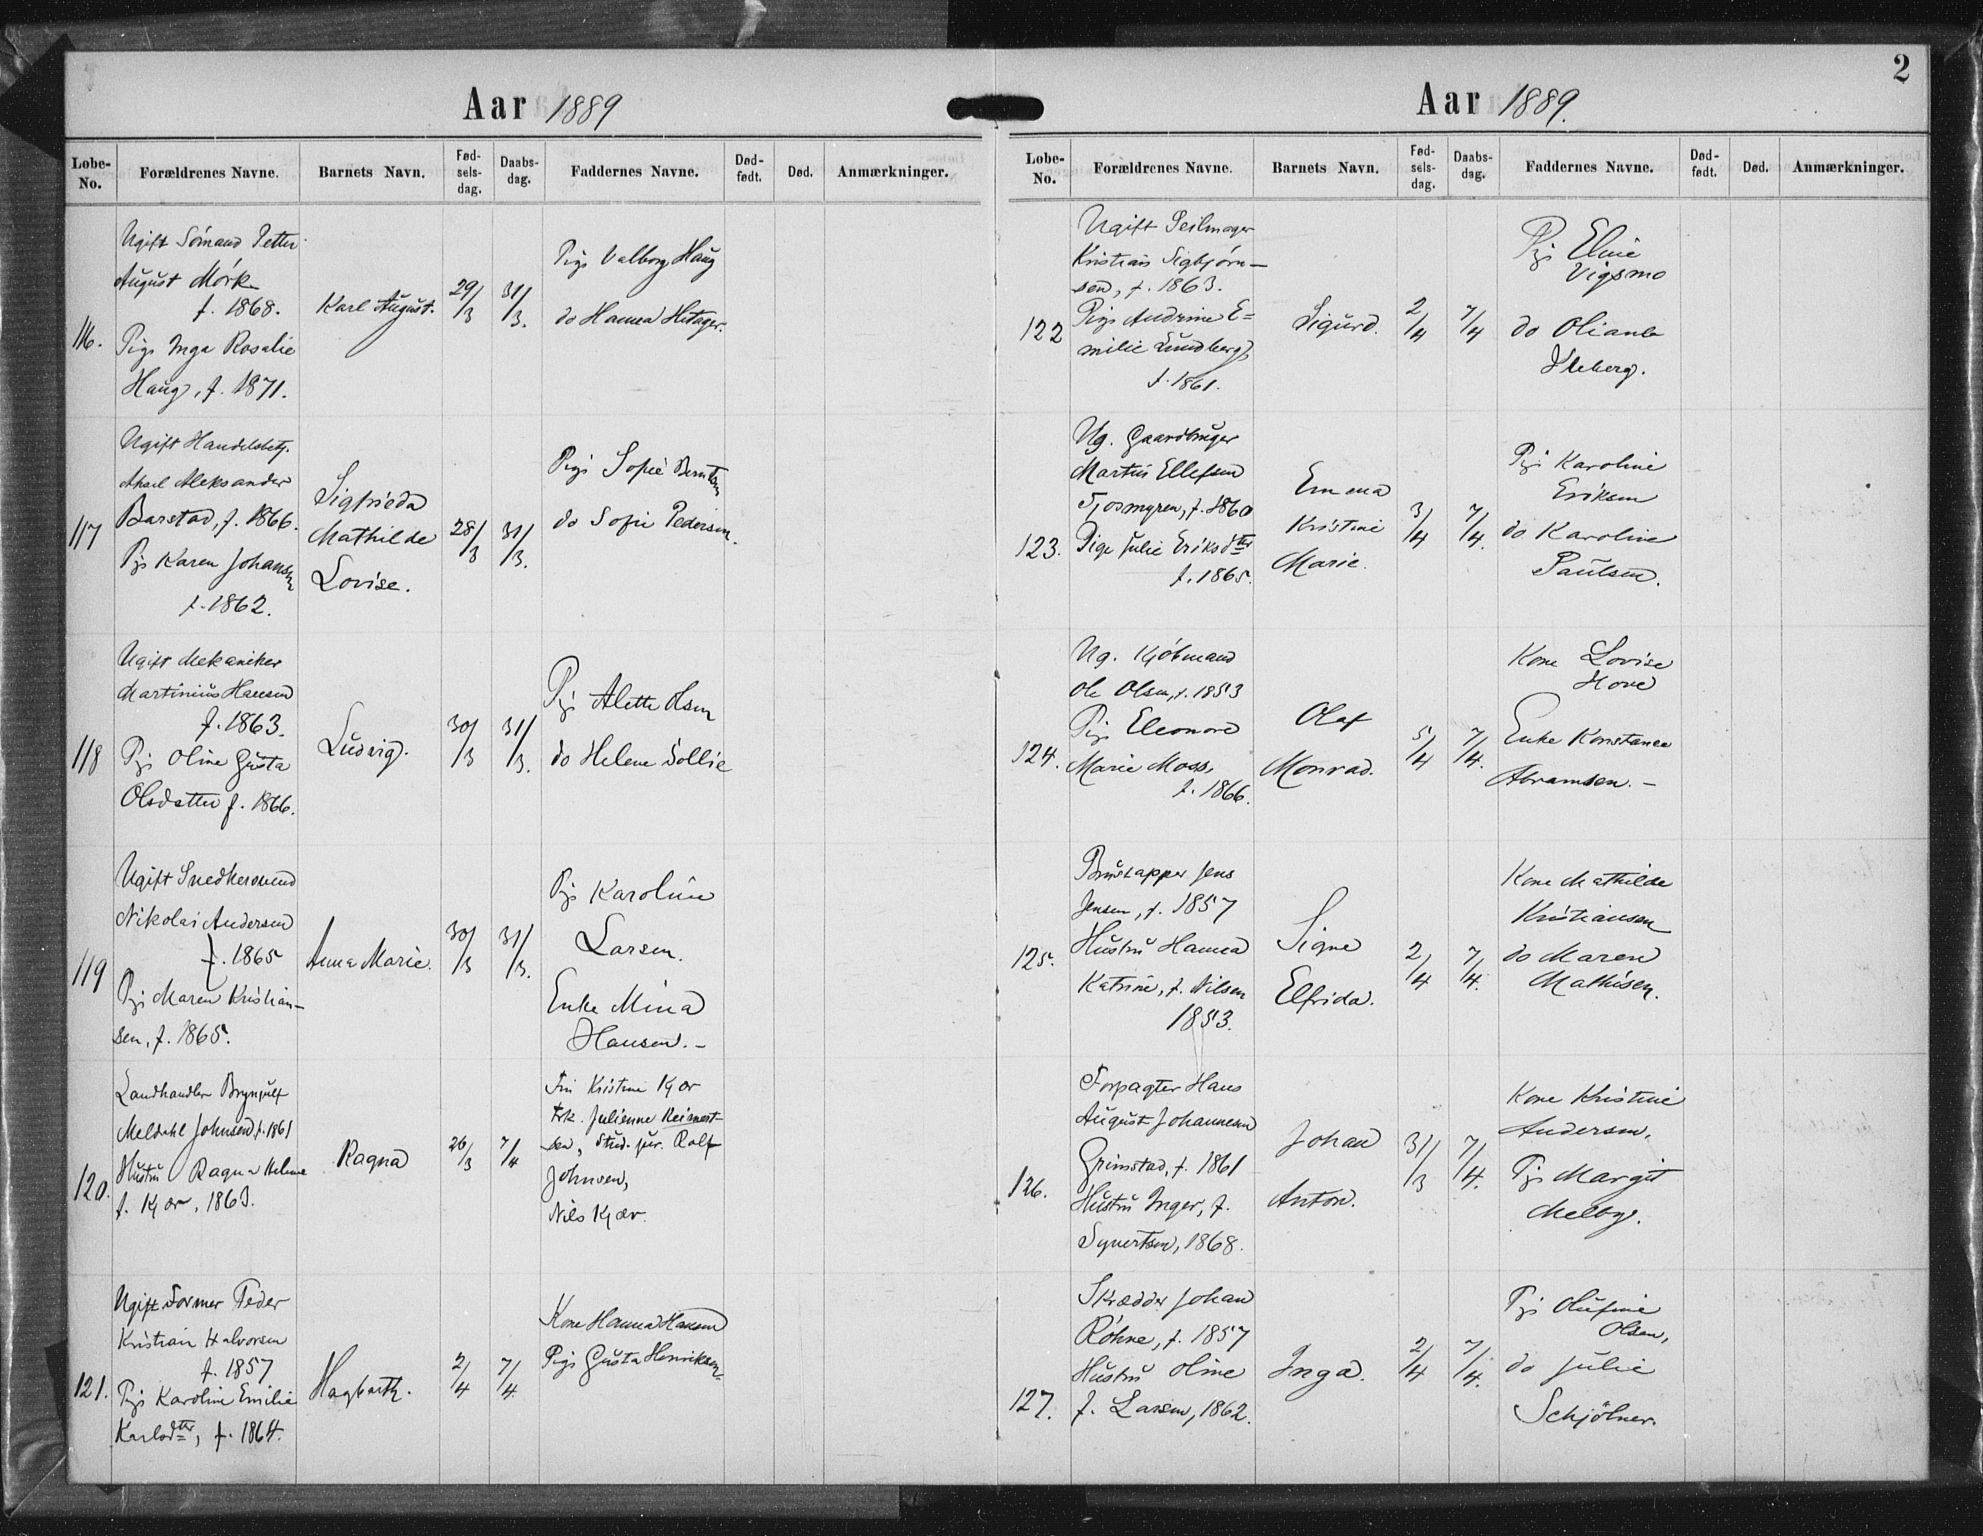 2
Aar 1889
Løbe-No. Forældrenes Navne. Barnets Navn. Fød-sels-dag. Daabs-dag. Faddernes Navne. Død-født. Død. Anmærkninger.
116.
Ugift Sømand Petter
August Mørk
f. 1868.
Pige Inga Rosalie
Haug, f. 1871.
Karl August.
29/3
31/3.
Pige Valborg Haug
do Hanna
117
Ugift
Aksel Aleksander
Barstad, f. 1866.
Pige Karen Johansen
f. 1862.
Sigfrieda
Mathilde
Lovise.
28/3
31/3.
Pige Sofie Berntsen
do Sofie Pedersen.
118
Ugift Mekaniker
Martinius Hansen
f. 1863.
Pige Oline Gusta
Olsdatter f. 1866.
Ludvig.
30/3
31/3.
Pige Alette Olsen
do Helene Sollie
119
Ugift Snedkersvend
Nikolai Andersen
f. 1865
Pige Maren Kristian-
sen, f. 1865.
Anna Marie.
30/3
31/3.
Pige Karoline
Larsen.
Enke Mina
Hansen. -
120.
Landhandler Brynjulf
Meldahl Johnsen, f. 1861
Hustru Ragna Helene
f. Kjær, 1863.
Ragna
26/3
7/4
Fru Kristine Kjær
Frk. Julienne Reinert-
sen, Stud. jur. Rolf
Johnsen,
Nils Kjær.
121.
Ugift Former Peder
Kristian Halvorsen
f. 1857
Pige Karoline Emilie
Karlsdtr, f. 1864.
Hagbarth.
2/4
7/4.
Kone Hanna Hansen
Pige Gusta Henriksen.
Aar 1889.
Løbe-No. Forældrenes Navne. Barnets Navn. Fød-sels-dag. Daabs-dag. Faddernes Navne. Død-født. Død. Anmærkninger.
122
Ugift Seilmager
Kristian Sigbjørn-
sen, f. 1863.
Pige Andrine E=
milie Lundberg,
f. 1861.
Sigurd.
2/4
7/4
Pige Eline
Vigsmo
do Oliane
Kleberg.
123.
Ug. Gaardbruger
Martin Ellefsen
Tjosmyren, f. 1860
Pige Julie Eriksdtr
f. 1865.
Emma
Kristine
Marie.
3/4
7/4.
Pige Karoline
Eriksen
do Karoline
Paulsen.
124.
Ug. Kjøbmand
Ole Olsen, f. 1853
Pige Eleonore
Marie Moss,
f. 1866.
Olaf
Monrad.
5/4
7/4.
Kone Lovise
Hove
Enke Konstance
Abramsen. -
125.
Brustapper Jens
Jensen, f. 1857
Hustru Hanna
Katrine, f. Nilsen
1853.
Signe
Elfrida.
2/4
7/4.
Kone Mathilde
Kristiansen
do Maren
Mathisen.
126.
Forpagter Hans
August Johannesen
Grimstad, f. 1861
Hustru Inger, f.
Syvertsen, 1868.
Johan
Anton.
31/3
7/4.
Kone Kristine
Andersen.
Pige Margit
Melby.
127.
Skrædder Johan
Røhne, f. 1857
Hustru Oline
f. Larsen, 1862.
Inga.
2/4
7/4.
Pige Olufine
Olsen,
do Julie
Schjølner.